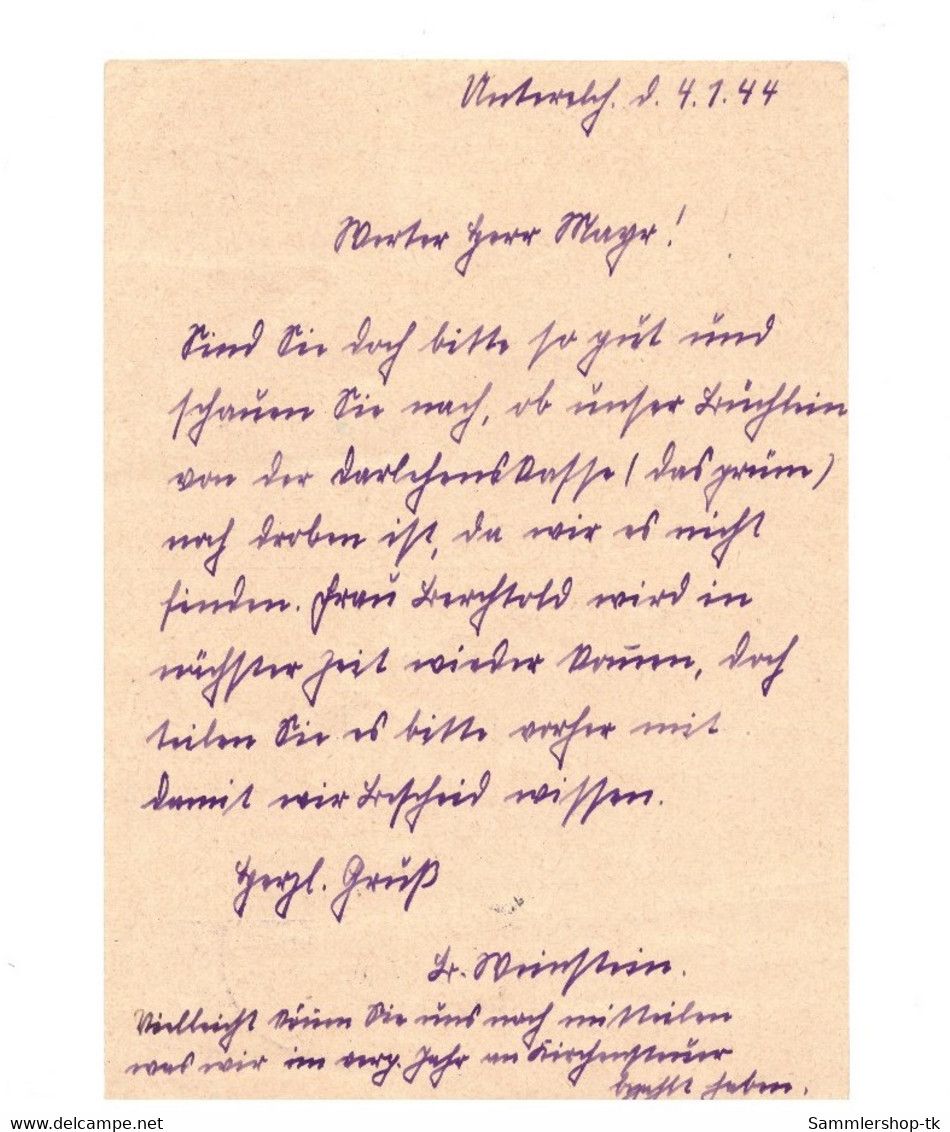 Unterelch. d. 4.1.44
Werter Herr Mayr!
Sind Sie doch bitte so gut und
schauen Sie nach, ob unser Büchlein
von der Darlehenskasse (das grüne)
noch droben ist, da wir es nicht
finden. Frau Berchtold wird in
nächster Zeit wieder kom̄en, doch
teilen Sie es bitte vorher mit
damit wir Bescheid wissen.
Herzl. Gruß
B. Weinstein.
Vielleicht kön̄en Sie uns noch mitteilen
was wir im verg. Jahr an Kirchensteuer
bezahlt haben.
www.delcampe.net
Sammlershop-tk